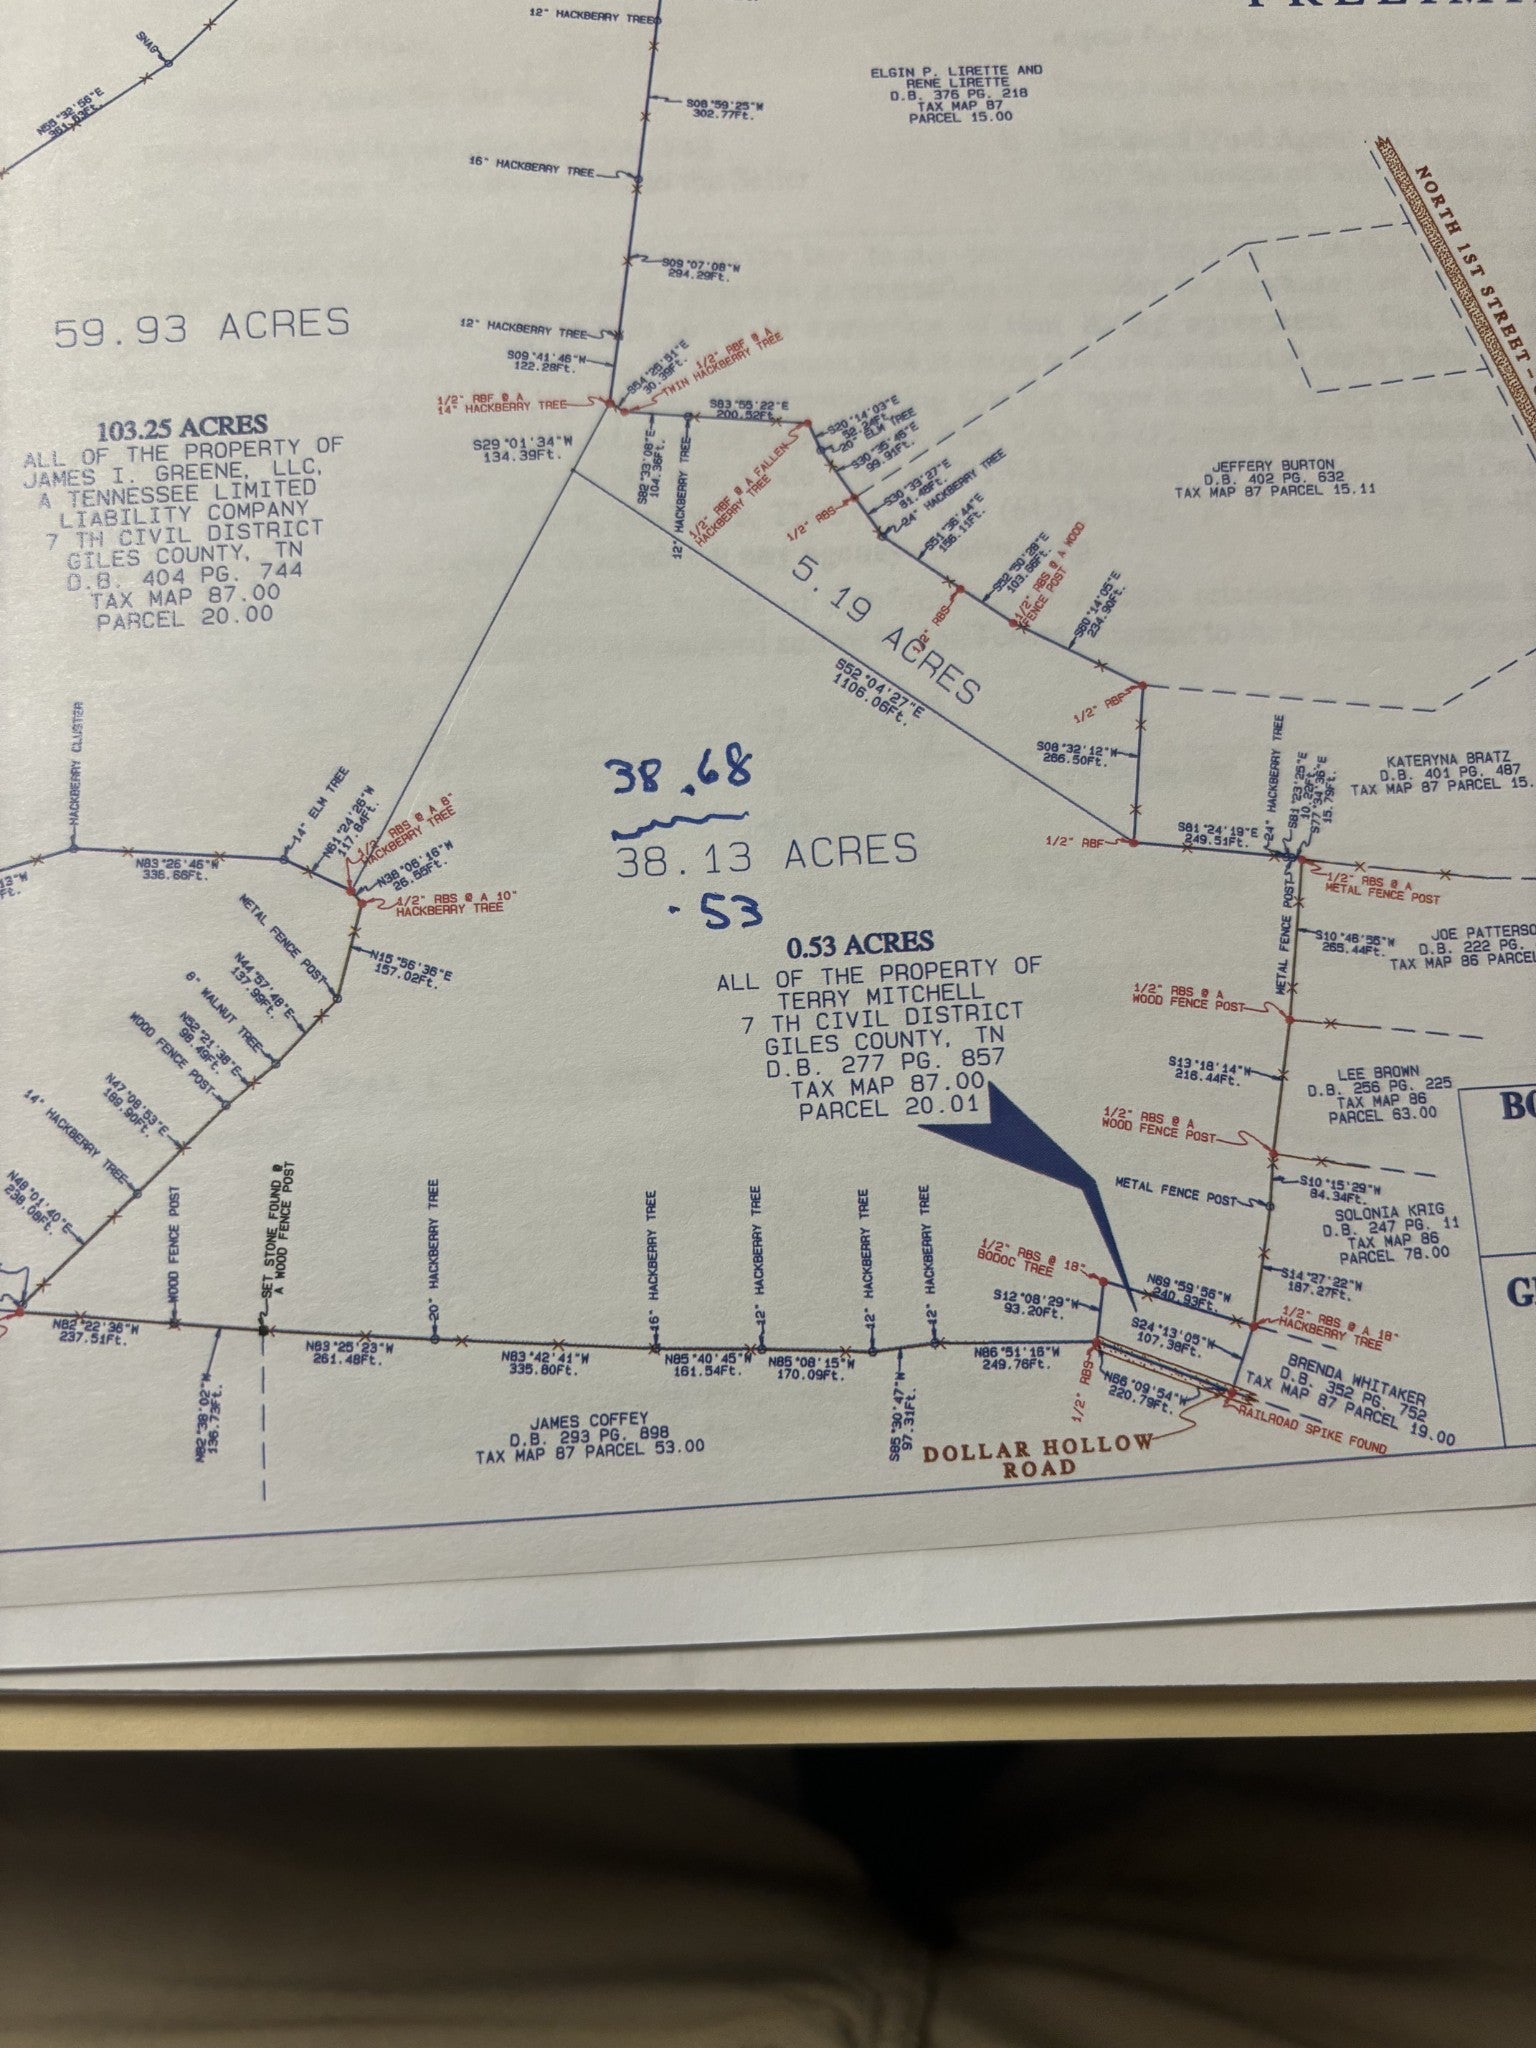 12" HACKBERRY TREE
SNAG
N55°32'56"E
ELGIN P. LIRETTE AND
RENE LIRETTE
D.B. 376 PG. 218
TAX MAP 87
PARCEL 15.00
S08°59'25"W
302.77Ft.
16" HACKBERRY TREE
NORTH 1ST STREET -
S09°07'08"W
294.29Ft.
59.93 ACRES
12" HACKBERRY TREE
S09°41'46"W
122.28Ft.
S54°25'51"E
30.39Ft.
1/2" RBF @ A
TWIN HACKBERRY TREE
1/2" RBF @ A
14" HACKBERRY TREE
S83°55'22"E
200.52Ft.
S20°14'03"E
52.24Ft.
20" ELM TREE
S30°35'45"E
99.91Ft.
103.25 ACRES
ALL OF THE PROPERTY OF
JAMES I. GREENE, LLC,
A TENNESSEE LIMITED
LIABILITY COMPANY
7 TH CIVIL DISTRICT
GILES COUNTY, TN
D.B. 404 PG. 744
TAX MAP 87.00
PARCEL 20.00
S29°01'34"W
134.39Ft.
S82°33'08"E
104.36Ft.
12" HACKBERRY TREE
1/2" RBF @ A FALLEN
HACKBERRY TREE
1/2" RBS
S30°33'27"E
81.48Ft.
24" HACKBERRY TREE
JEFFERY BURTON
D.B. 402 PG. 632
TAX MAP 87 PARCEL 15.11
S51°38'44"E
156.11Ft.
S52°50'29"E
103.66Ft.
1/2" RBS @ A WOOD
FENCE POST
1/2" RBS
5.19 ACRES
S60°14'05"E
234.90Ft.
S52°04'27"E
1106.06Ft.
1/2" RBF
S08°32'12"W
266.50Ft.
KATERYNA BRATZ
D.B. 401 PG. 487
TAX MAP 87 PARCEL 15.
HACKBERRY CLUSTER
38.68
38.13 ACRES
.53
1/2" RBF
S81°24'19"E
249.51Ft.
24" HACKBERRY TREE
S81°23'25"E
10.22Ft.
S77°34'36"E
15.79Ft.
14" ELM TREE
N61°24'26"W
117.84Ft.
1/2" RBS @ A 8"
HACKBERRY TREE
N83°26'46"W
336.66Ft.
N38°06'16"W
26.55Ft.
1/2" RBS @ A 10"
HACKBERRY TREE
1/2" RBS @ A
METAL FENCE POST
METAL FENCE POST
N15°56'36"E
157.02Ft.
METAL FENCE POST
S10°46'55"W
265.44Ft.
JOE PATTERSO
D.B. 222 PG.
TAX MAP 86 PARCEL
0.53 ACRES
ALL OF THE PROPERTY OF
TERRY MITCHELL
7 TH CIVIL DISTRICT
GILES COUNTY, TN
D.B. 277 PG. 857
TAX MAP 87.00
PARCEL 20.01
N44°57'48"E
137.99Ft.
8" WALNUT TREE
N52°21'38"E
96.49Ft.
WOOD FENCE POST
1/2" RBS @ A
WOOD FENCE POST
S13°18'14"W
216.44Ft.
LEE BROWN
D.B. 256 PG. 225
TAX MAP 86
PARCEL 63.00
N47°08'53"E
189.90Ft.
14" HACKBERRY TREE
1/2" RBS @ A
WOOD FENCE POST
N48°01'40"E
238.08Ft.
METAL FENCE POST
S10°15'29"W
84.34Ft.
SOLONIA KRIG
D.B. 247 PG. 11
TAX MAP 86
PARCEL 78.00
WOOD FENCE POST
SET STONE FOUND @
A WOOD FENCE POST
20" HACKBERRY TREE
16" HACKBERRY TREE
12" HACKBERRY TREE
12" HACKBERRY TREE
12" HACKBERRY TREE
1/2" RBS @ 18"
BODOC TREE
S12°08'29"W
93.20Ft.
N69°59'56"W
240.93Ft.
S14°27'22"W
187.27Ft.
1/2" RBS @ A 18"
HACKBERRY TREE
N82°22'36"W
237.51Ft.
N82°38'02"W
136.73Ft.
N83°25'23"W
261.48Ft.
N83°42'41"W
335.80Ft.
N85°40'45"W
161.54Ft.
N85°08'15"W
170.09Ft.
S85°30'47"W
97.31Ft.
N86°51'16"W
249.76Ft.
S24°13'05"W
107.38Ft.
1/2" RBS
N66°09'54"W
220.79Ft.
BRENDA WHITAKER
D.B. 352 PG. 752
TAX MAP 87 PARCEL 19.00
RAILROAD SPIKE FOUND
JAMES COFFEY
D.B. 293 PG. 898
TAX MAP 87 PARCEL 53.00
DOLLAR HOLLOW
ROAD